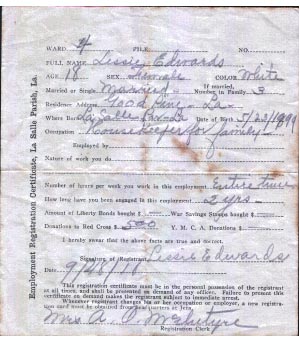 Employment Registration Certificate, La Salle Parish, La.
WARD 4 FILE NO.
FULL NAME Lessie Edwards
AGE 18 SEX Female COLOR White
Married or Single Married If married, Number in Family 3
Residence Address Good Pine, La
Where Born La Salle Parish Date of Birth 5/23/1899
Occupation Housekeeper for family
Employed by
Nature of work you do
Number of hours per week you work in this employment Entire time
How long have you been engaged in this employment 2 yrs.
Amount of Liberty Bonds bought $ War Savings Stamps bought $
Donations to Red Cross $ Y. M. C. A. Donations $
I hereby swear that the above facts are true and correct.
Signature of Registrant Lessie Edwards
Date 9/28/18
This registration certificate must be in the personal possession of the registrant at all times, and should be presented on demand of any officer. Failure to present this certificate on demand makes the registrant subject to immediate arrest.
Whenever registrant changes his or her occupation or employer, a new registration card must be obtained from quarters at Jena.
Mrs. McIntyre
Registration Clerk